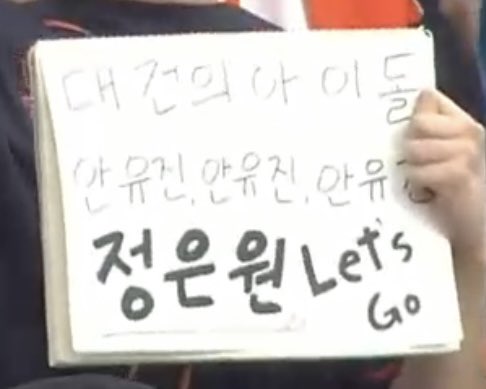 대전의 아이돌
안유진, 안유진, 안유진
정은원 Let's
Go